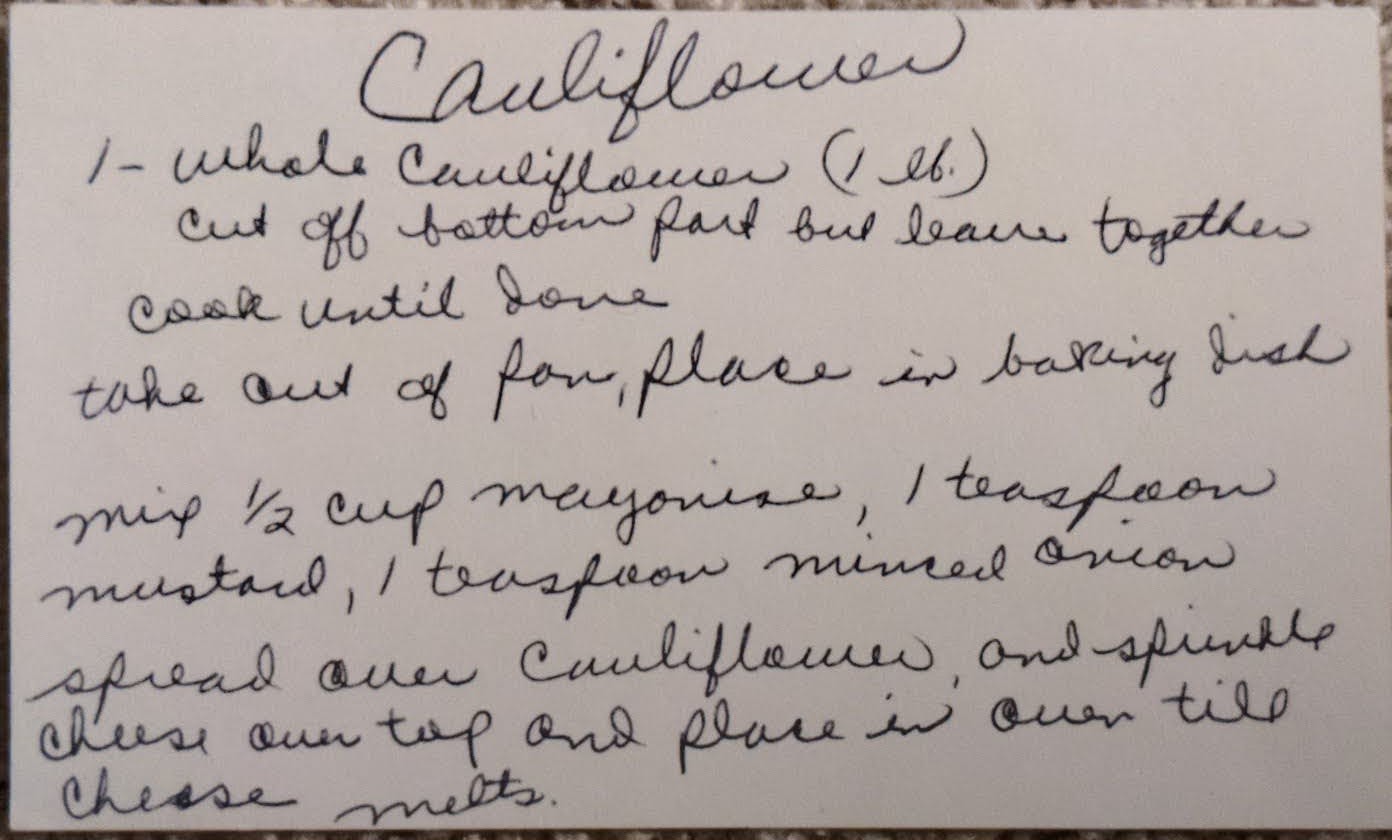 Cauliflower
1 - whole Cauliflower (1 lb.)
cut off bottom part but leave together
cook until done
take out of pan, place in baking dish
mix 1/2 cup mayonise, 1 teaspoon
mustard, 1 teaspoon minced onion
spread over Cauliflower, and sprinkle
cheese over top and place in oven till
cheese melts.